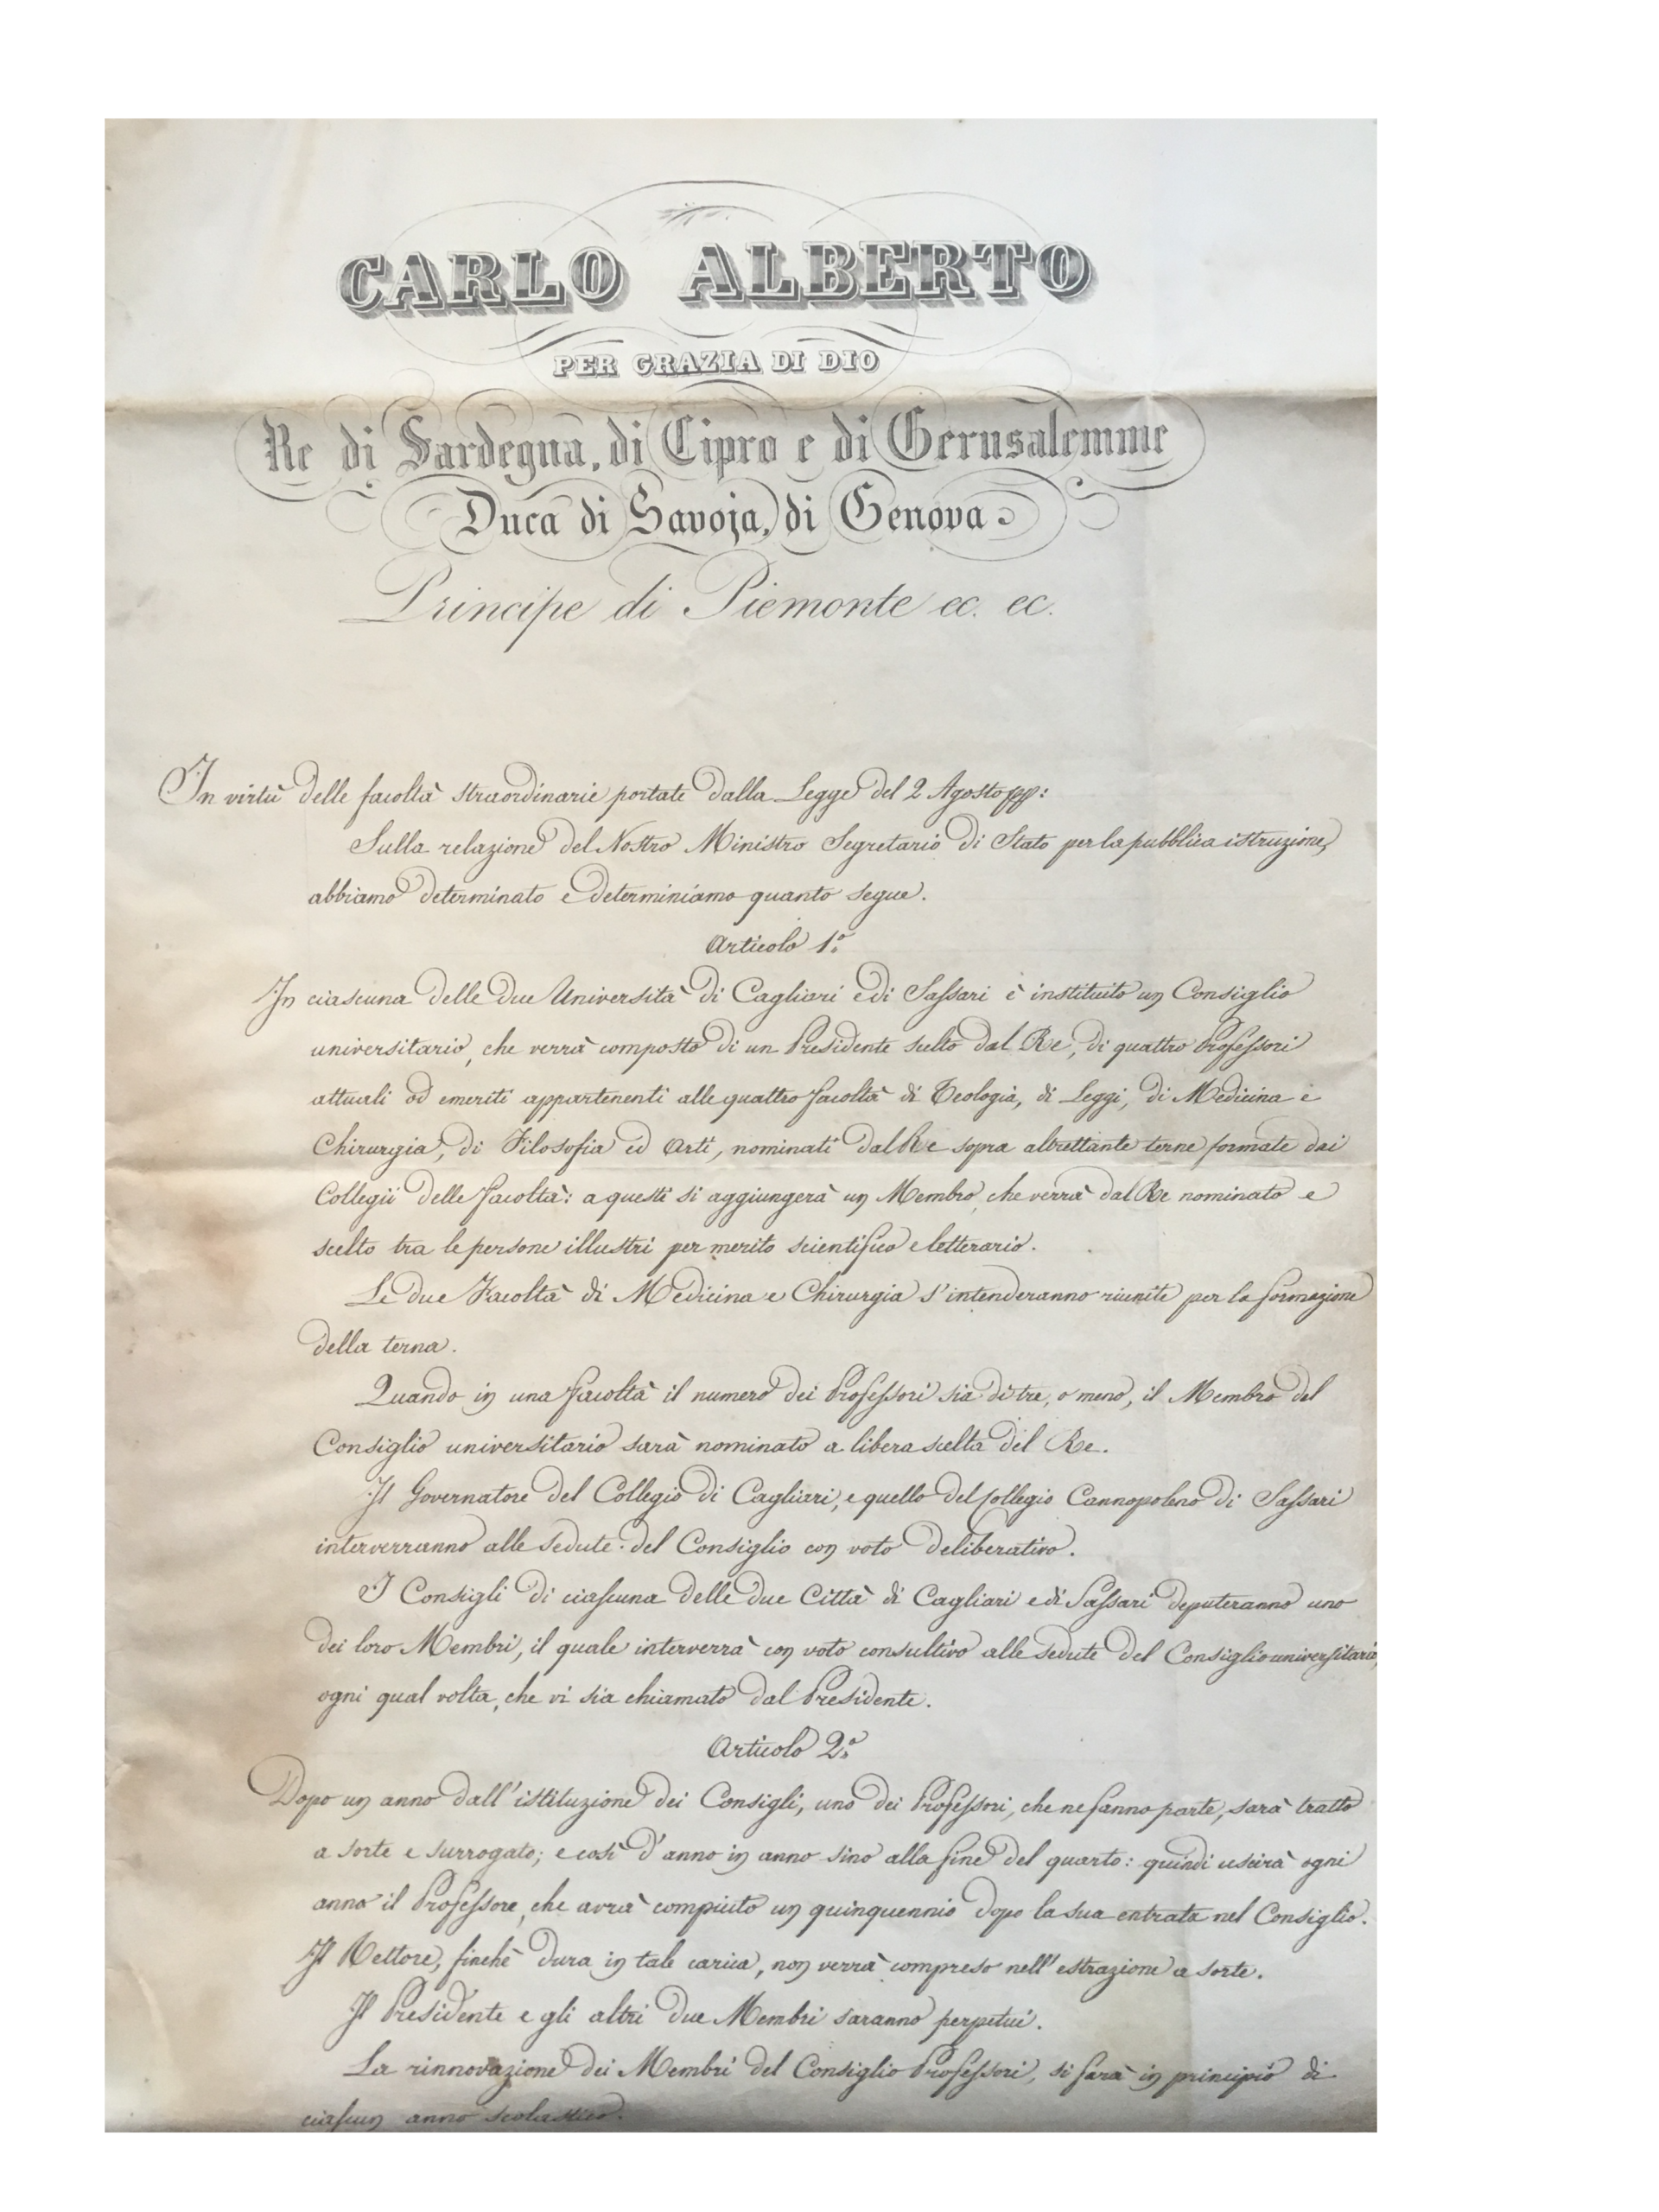 CARLO ALBERTO
PER GRAZIA DI DIO
Re di Sardegna, di Cipro e di Gerusalemme
Duca di Savoja, di Genova
Principe di Piemonte ec. ec.
In virtù delle facoltà straordinarie portate dalla Legge del 2 Agosto pp:
Sulla relazione del Nostro Ministro Segretario di Stato per la pubblica istruzione,
abbiamo determinato e determiniamo quanto segue.
Articolo 1.°
In ciascuna delle due Università di Cagliari e di Sassari è instituito un Consiglio
universitario, che verrà composto di un Presidente scelto dal Re, di quattro Professori
attuali od emeriti appartenenti alle quattro facoltà di Teologia, di Leggi, di Medicina e
Chirurgia, di Filosofia ed Arti, nominati dal Re sopra altrettante terne formate dai
Collegii delle facoltà: a questi si aggiungerà un Membro, che verrà dal Re nominato e
scelto tra le persone illustri per merito scientifico e letterario.
Le due Facoltà di Medicina e Chirurgia s'intenderanno riunite per la formazione
della terna.
Quando in una facoltà il numero dei Professori sia di tre, o meno, il Membro del
Consiglio universitario sarà nominato a libera scelta del Re.
Il Governatore del Collegio di Cagliari, e quello del Collegio Cannopoleno di Sassari
interverranno alle sedute del Consiglio con voto deliberativo.
I Consigli di ciascuna delle due Città di Cagliari e di Sassari deputeranno uno
dei loro Membri, il quale interverrà con voto consultivo alle sedute del Consiglio universitario,
ogni qual volta, che vi sia chiamato dal Presidente.
Articolo 2.°
Dopo un anno dall'istituzione dei Consigli, uno dei Professori, che ne fanno parte, sarà tratto
a sorte e surrogato; e così d'anno in anno sino alla fine del quarto: quindi uscirà ogni
anno il Professore, che avrà compiuto un quinquennio dopo la sua entrata nel Consiglio.
Il Rettore, finchè dura in tale carica, non verrà compreso nell'estrazione a sorte.
Il Presidente e gli altri due Membri saranno perpetui.
La rinnovazione dei Membri del Consiglio Professori, si farà in principio di
ciascun anno scolastico.